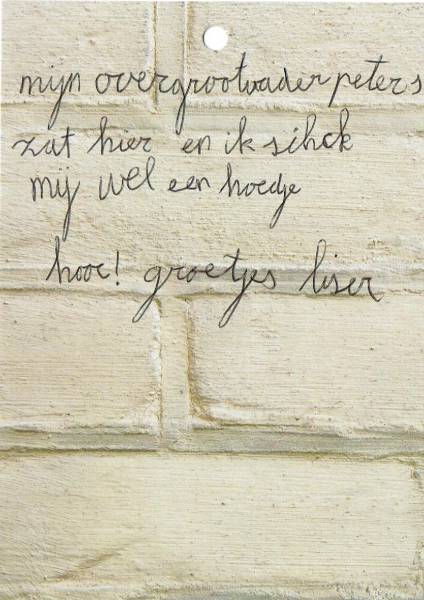 mijn overgrootvader peters
zat hier en ik sihck
mij wel een hoedje
hooc! groetjes liser